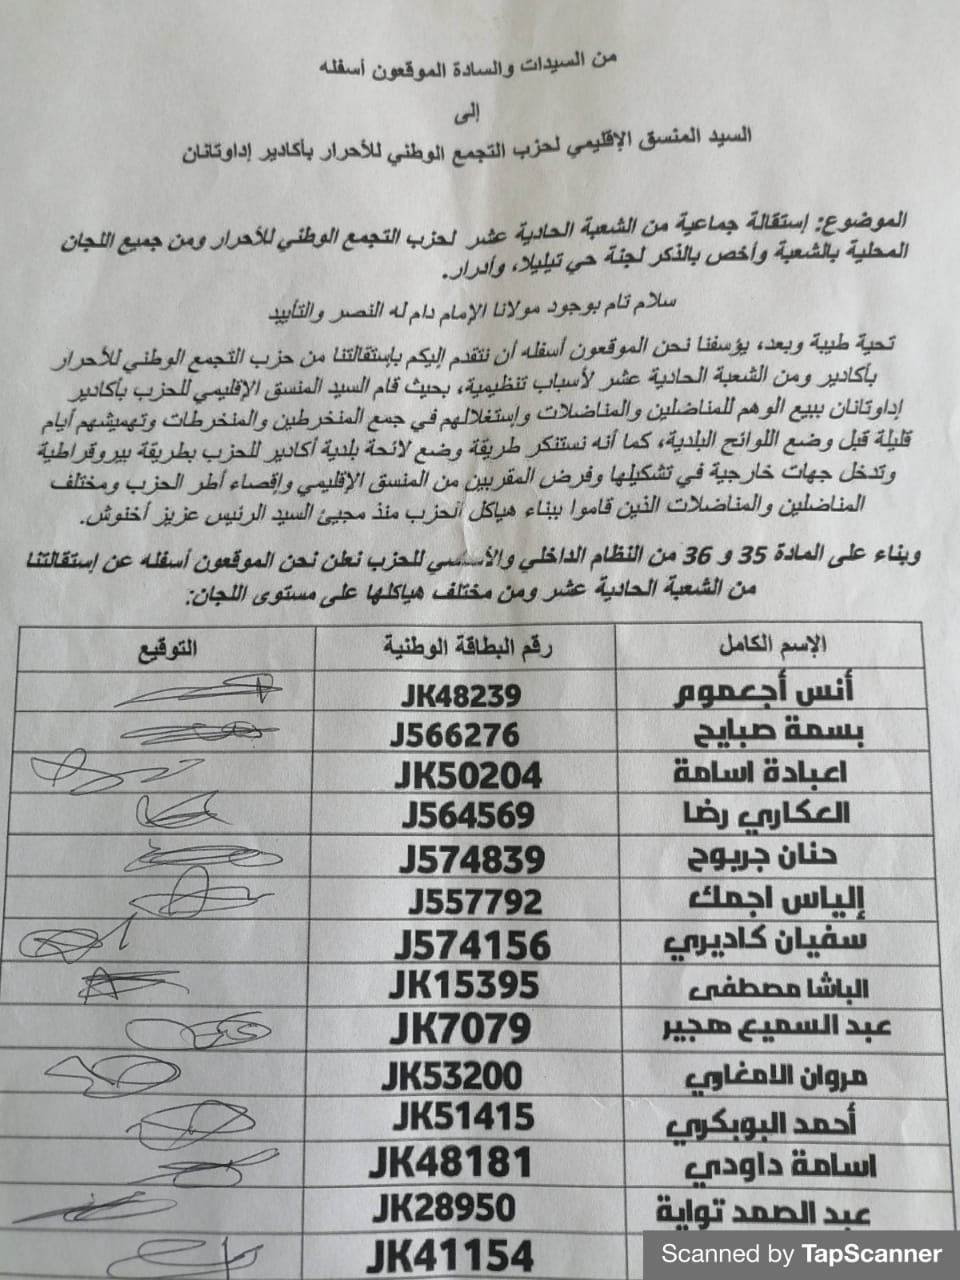 من السيدات والسادة الموقعون أسفله
إلى
السيد المنسق الإقليمي لحزب التجمع الوطني للأحرار بأكادير إداوتانان
الموضوع: إستقالة جماعية من الشعبة الحادية عشر لحزب التجمع الوطني للأحرار ومن جميع اللجان
المحلية بالشعبة وأخص بالذكر لجنة حي تيليلا، وأدرار.
سلام تام بوجود مولانا الإمام دام له النصر والتأييد
تحية طيبة وبعد، يؤسفنا نحن الموقعون أسفله أن نتقدم إليكم بإستقالتنا من حزب التجمع الوطني للأحرار
بأكادير ومن الشعبة الحادية عشر لأسباب تنظيمية، بحيث قام السيد المنسق الإقليمي للحزب بأكادير
إداوتانان ببيع الوهم للمناضلين والمناضلات وإستغلالهم في جمع المنخرطين والمنخرطات وتهميشهم أيام
قليلة قبل وضع اللوائح البلدية، كما أنه نستنكر طريقة وضع لائحة بلدية أكادير للحزب بطريقة بيروقراطية
وتدخل جهات خارجية في تشكيلها وفرض المقربين من المنسق الإقليمي وإقصاء أطر الحزب ومختلف
المناضلين والمناضلات الذين قاموا ببناء هياكل الحزب منذ مجيئ السيد الرئيس عزيز أخنوش.
وبناء على المادة 35 و 36 من النظام الداخلي والأساسي للحزب نعلن نحن الموقعون أسفله عن إستقالتنا
من الشعبة الحادية عشر ومن مختلف هياكلها على مستوى اللجان:
الإسم الكامل رقم البطاقة الوطنية التوقيع
أنس أجعموم JK48239
بسمة صبايح J566276
اعبادة اسامة JK50204
العكاري رضا J564569
حنان جربوح J574839
إلياس اجمك J557792
سفيان كاديري J574156
الباشا مصطفى JK15395
عبد السميع هجير JK7079
مروان الامغاوي JK53200
أحمد البوبكري JK51415
اسامة داودي JK48181
عبد الصمد تواية JK28950
JK41154
Scanned by TapScanner